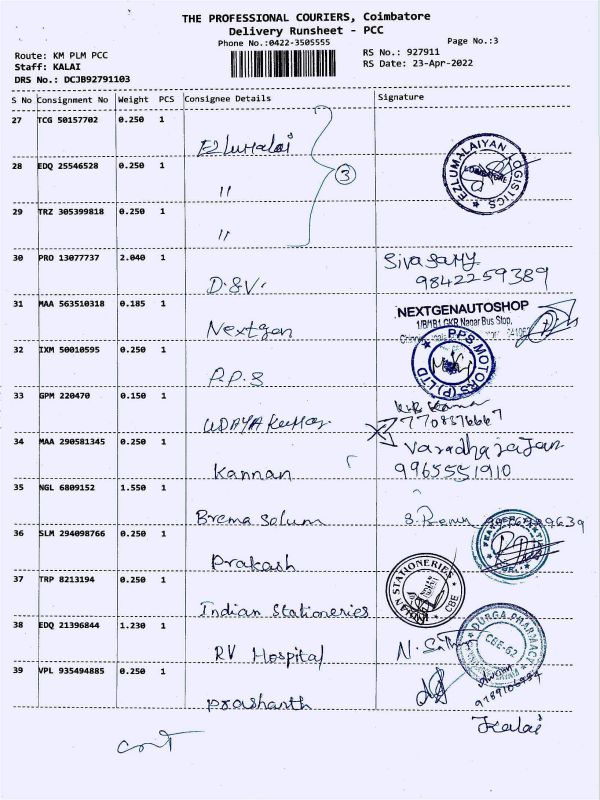 THE PROFESSIONAL COURIERS, Coimbatore
Delivery Runsheet - PCC
Phone No.:0422-3505555
Page No.:3
Route: KM PLM PCC
RS No.: 927911
Staff: KALAI
RS Date: 23-Apr-2022
DRS No.: DCJB92791103
S No Consignment No Weight PCS Consignee Details Signature
27 TCG 50157702 0.250 1
Ezlumalai
28 EDQ 25546528 0.250 1
"
3
EZLUMALAIYAN LOGISTICS
29 TRZ 305399818 0.250 1
"
30 PRO 13077737 2.040 1
D.S.V. Sivasamy
9842259389
31 MAA 563510318 0.185 1
Nextgen
NEXTGENAUTOSHOP
1/B1 GKR Nagar Bus Stop,
32 IXM 50010595 0.250 1
P.P.S
PPS MOTORS (P) LTD
33 GPM 220470 0.150 1
UDAYA Kumar
7708376667
34 MAA 290581345 0.250 1
Kannan
Varadharajan
9965551910
35 NGL 6809152 1.550 1
Brema Solum
36 SLM 294098766 0.250 1
Prakash
37 TRP 8213194 0.250 1
Indian Stationeries
STATIONERIES
CBE
38 EDQ 21396844 1.230 1
RV Hospital
DURGA PHARMACY
CBE-62
39 VPL 935494885 0.250 1
prashanth
Kalai
cont